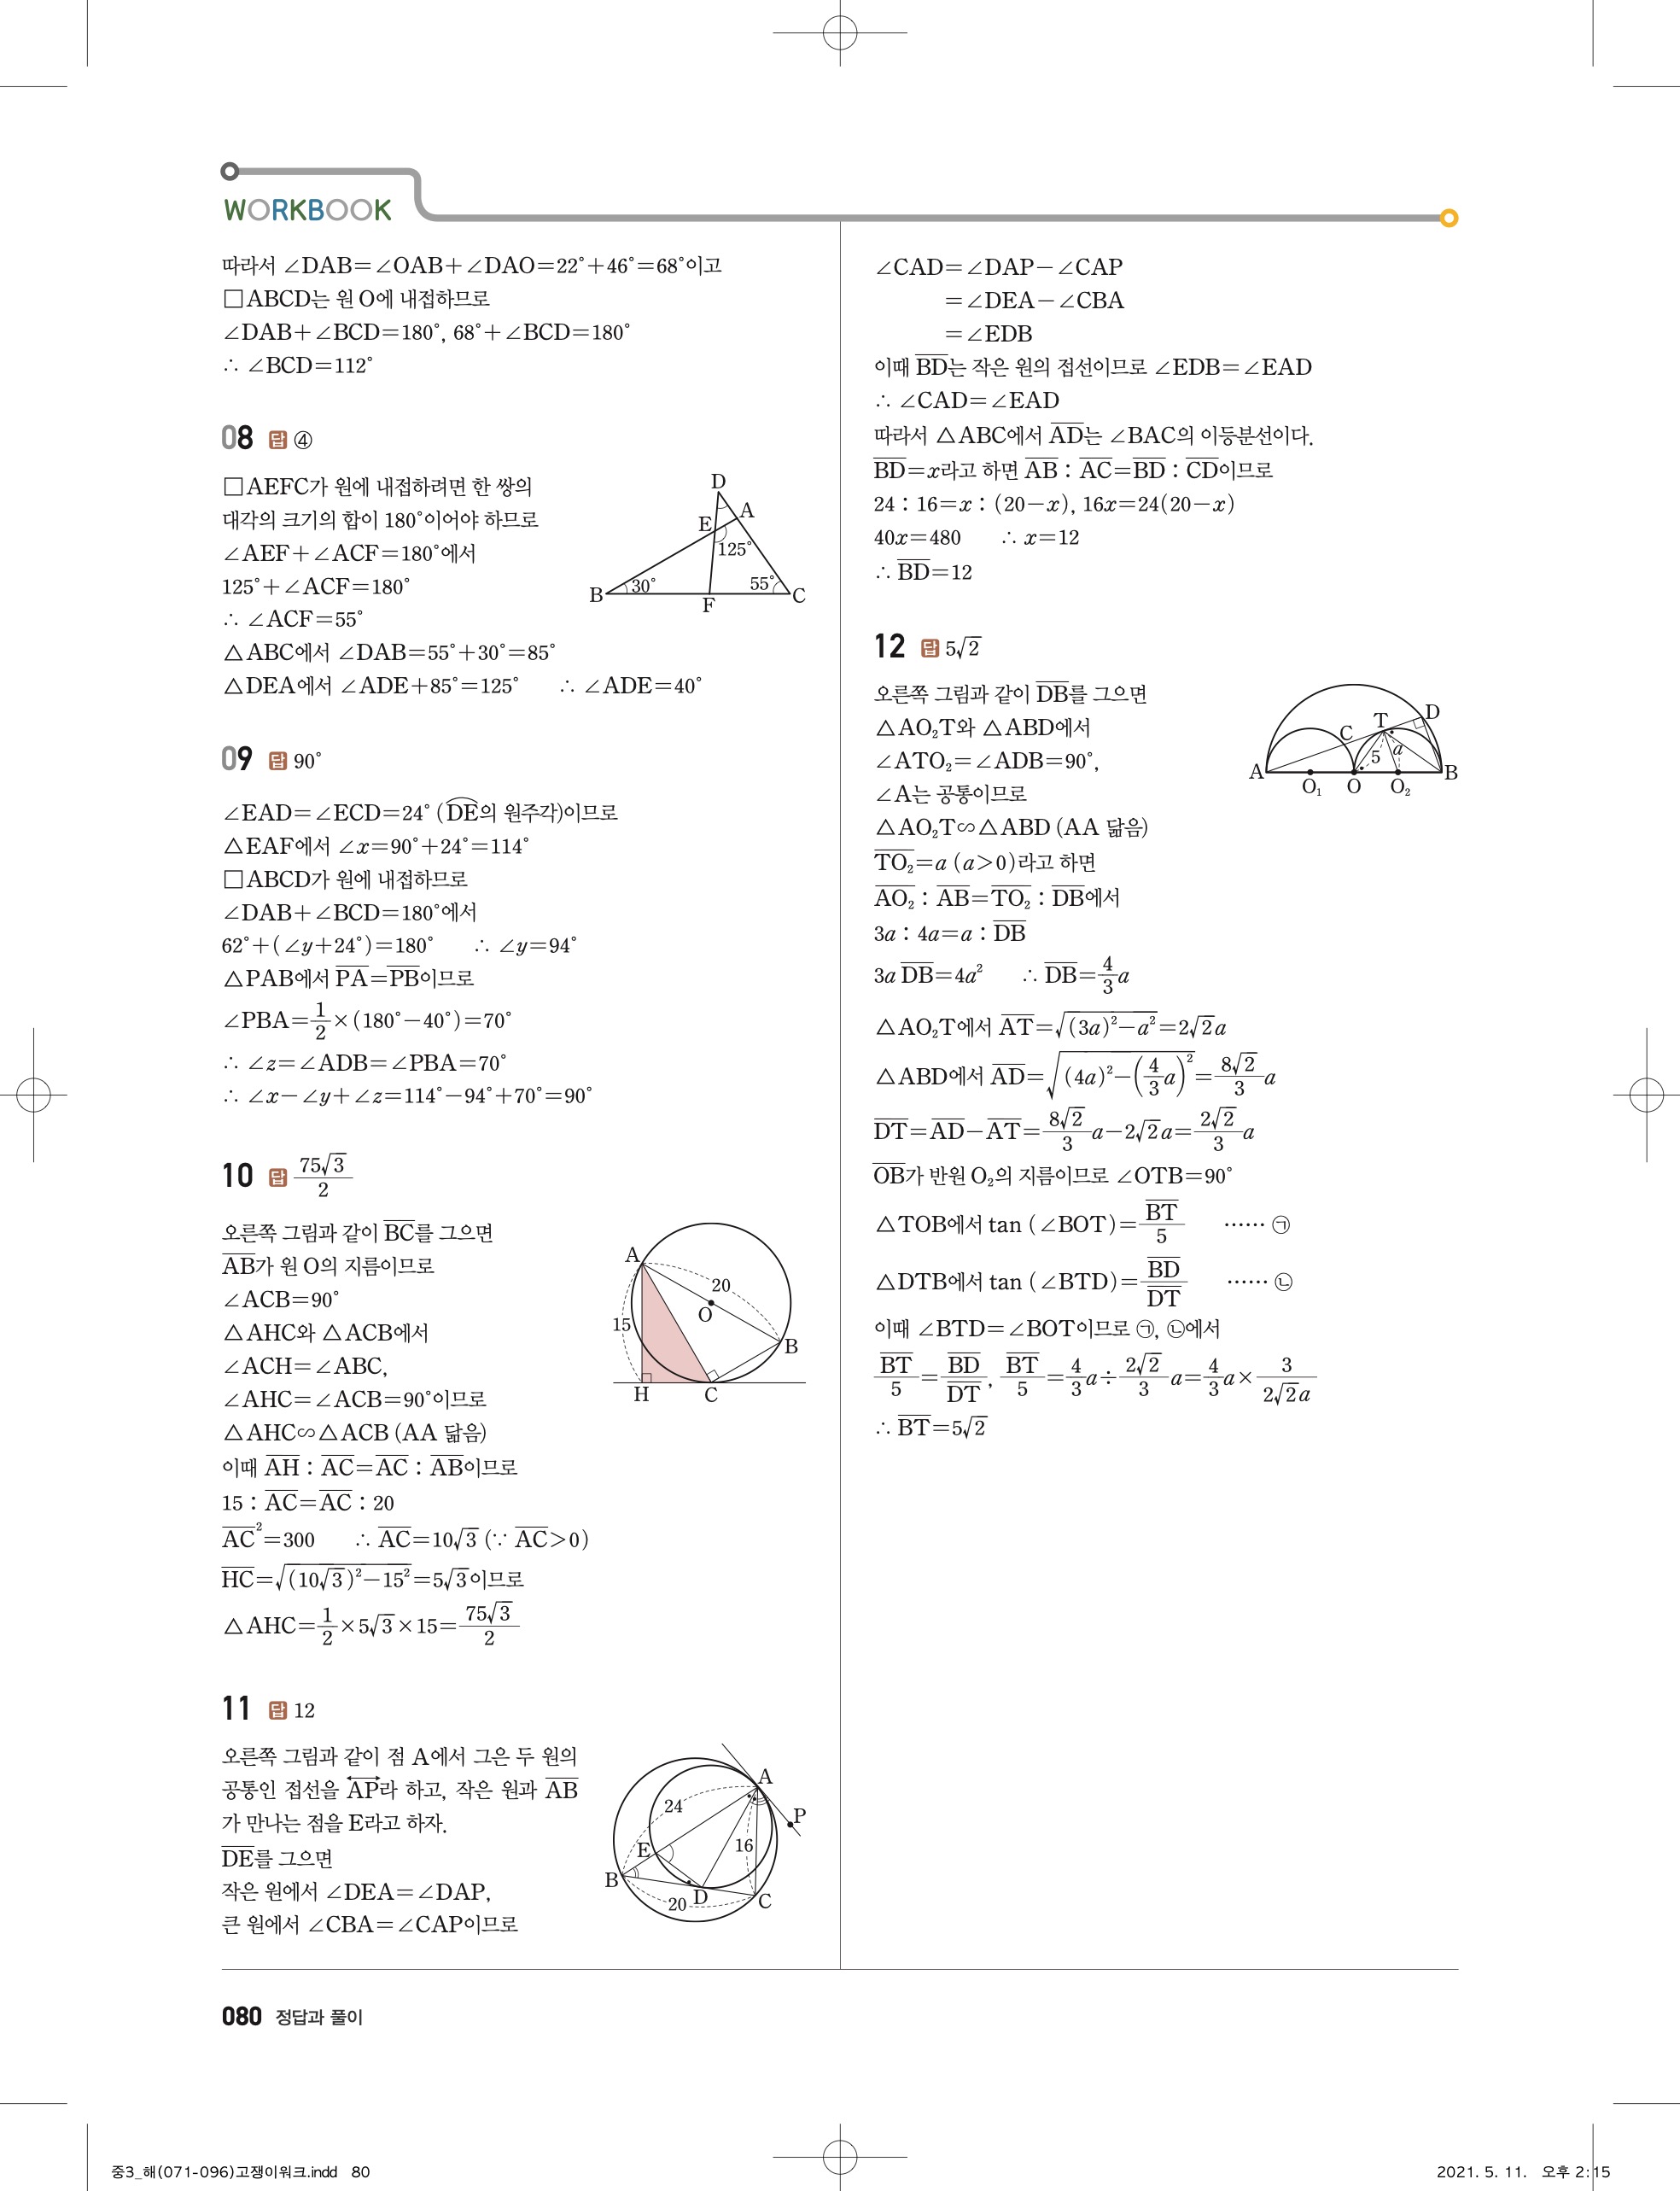 WORKBOOK
따라서 ∠DAB=∠OAB+∠DAO=22°+46°=68°이고
□ABCD는 원 O에 내접하므로
∠DAB+∠BCD=180°, 68°+∠BCD=180°
∴ ∠BCD=112°
08 답 ④
□AEFC가 원에 내접하려면 한 쌍의
대각의 크기의 합이 180°이어야 하므로
∠AEF+∠ACF=180°에서
125°+∠ACF=180°
∴ ∠ACF=55°
△ABC에서 ∠DAB=55°+30°=85°
△DEA에서 ∠ADE+85°=125° ∴ ∠ADE=40°
D
A
E
125°
30°
55°
B
F
C
09 답 90°
∠EAD=∠ECD=24° (D͡E의 원주각)이므로
△EAF에서 ∠x=90°+24°=114°
□ABCD가 원에 내접하므로
∠DAB+∠BCD=180°에서
62°+(∠y+24°)=180° ∴ ∠y=94°
△PAB에서 P̅A̅=P̅B̅이므로
∠PBA=1/2×(180°-40°)=70°
∴ ∠z=∠ADB=∠PBA=70°
∴ ∠x-∠y+∠z=114°-94°+70°=90°
10 답 75√3/2
오른쪽 그림과 같이 B̅C̅를 그으면
A̅B̅가 원 O의 지름이므로
∠ACB=90°
△AHC와 △ACB에서
∠ACH=∠ABC,
∠AHC=∠ACB=90°이므로
△AHC∽△ACB (AA 닮음)
이때 A̅H̅ : A̅C̅=A̅C̅ : A̅B̅이므로
15 : A̅C̅=A̅C̅ : 20
A̅C̅²=300 ∴ A̅C̅=10√3 (∵ A̅C̅>0)
H̅C̅=√((10√3)²-15²)=5√3이므로
△AHC=1/2×5√3×15=75√3/2
A
20
O
15
B
H
C
11 답 12
오른쪽 그림과 같이 점 A에서 그은 두 원의
공통인 접선을 A͍P͍라 하고, 작은 원과 A̅B̅
가 만나는 점을 E라고 하자.
D̅E̅를 그으면
작은 원에서 ∠DEA=∠DAP,
큰 원에서 ∠CBA=∠CAP이므로
A
24
P
16
E
B
D
20
C
∠CAD=∠DAP-∠CAP
=∠DEA-∠CBA
=∠EDB
이때 B̅D̅는 작은 원의 접선이므로 ∠EDB=∠EAD
∴ ∠CAD=∠EAD
따라서 △ABC에서 A̅D̅는 ∠BAC의 이등분선이다.
B̅D̅=x라고 하면 A̅B̅ : A̅C̅=B̅D̅ : C̅D̅이므로
24 : 16=x : (20-x), 16x=24(20-x)
40x=480 ∴ x=12
∴ B̅D̅=12
12 답 5√2
오른쪽 그림과 같이 D̅B̅를 그으면
△AO₂T와 △ABD에서
∠ATO₂=∠ADB=90°,
∠A는 공통이므로
△AO₂T∽△ABD (AA 닮음)
T̅O̅₂=a (a>0)라고 하면
A̅O̅₂ : A̅B̅=T̅O̅₂ : D̅B̅에서
3a : 4a=a : D̅B̅
3a D̅B̅=4a² ∴ D̅B̅=4/3a
△AO₂T에서 A̅T̅=√((3a)²-a²)=2√2a
△ABD에서 A̅D̅=√((4a)²-(4/3a)²)=8√2/3a
D̅T̅=A̅D̅-A̅T̅=8√2/3a-2√2a=2√2/3a
O̅B̅가 반원 O₂의 지름이므로 ∠OTB=90°
△TOB에서 tan (∠BOT)=B̅T̅/5 …… ㉠
△DTB에서 tan (∠BTD)=B̅D̅/D̅T̅ …… ㉡
이때 ∠BTD=∠BOT이므로 ㉠, ㉡에서
B̅T̅/5=B̅D̅/D̅T̅, B̅T̅/5=4/3a÷2√2/3a=4/3a×3/2√2a
∴ B̅T̅=5√2
T
D
C
5
a
A
B
O₁
O
O₂
080 정답과 풀이
중3_해(071-096)고쟁이워크.indd 80
2021. 5. 11. 오후 2:15